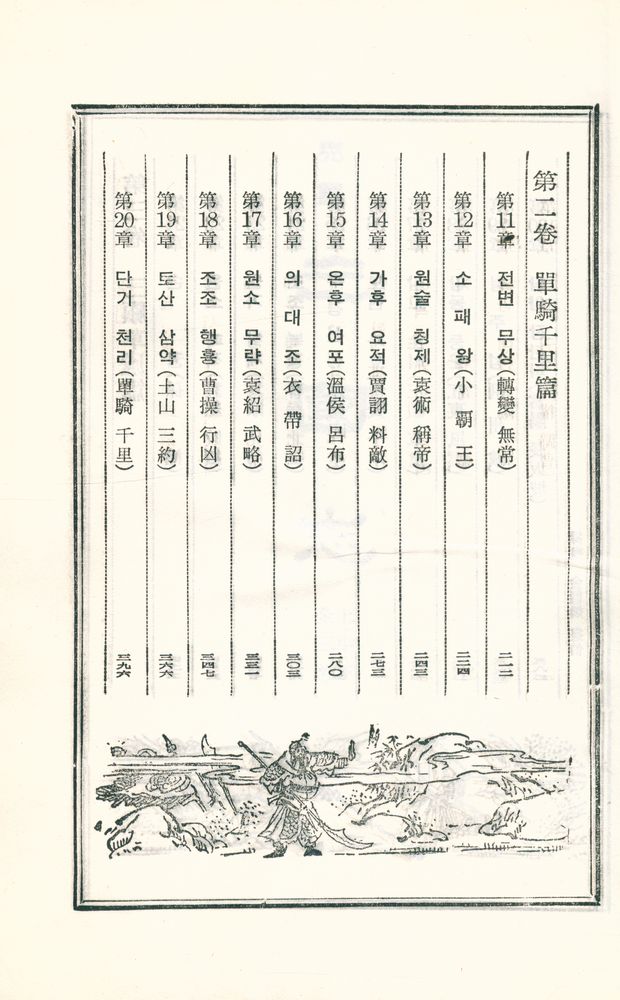 第二卷 單騎千里篇
第11章 전변 무상(轉變 無常) 二一二
第12章 소 패 왕(小 覇 王) 二二四
第13章 원술 칭제(袁術 稱帝) 二四三
第14章 가후 요적(賈詡 料敵) 二七三
第15章 온후 여포(溫侯 呂布) 二八〇
第16章 의 대 조(衣 帶 詔) 三〇三
第17章 원소 무략(袁紹 武略) 三三一
第18章 조조 행흉(曹操 行凶) 三四七
第19章 토산 삼약(土山 三約) 三六六
第20章 단기 천리(單騎 千里) 三九六